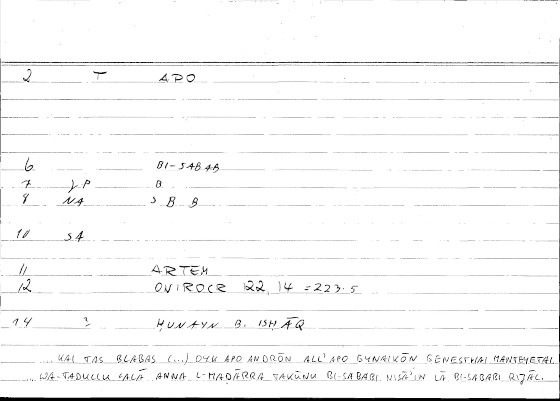 2 T APO
6 BI-SABAB
7 JP B
8 NA S B B
10 SA
11 ARTEM
12 OVIROCR 122, 14 = 223.5
14 ? ḤUNAYN B. ISḤĀQ
... KAI TAS BLABAS (...) OYK APO ANDRŌN ALL' APO GYNAIKŌN GENESTHAI MANTEYETAI
... WA-TADULLU ʿALĀ ANNA L-MAḌĀRRA TAKŪNU BI-SABABI NISĀʾIN LĀ BI-SABABI RIǦĀL.